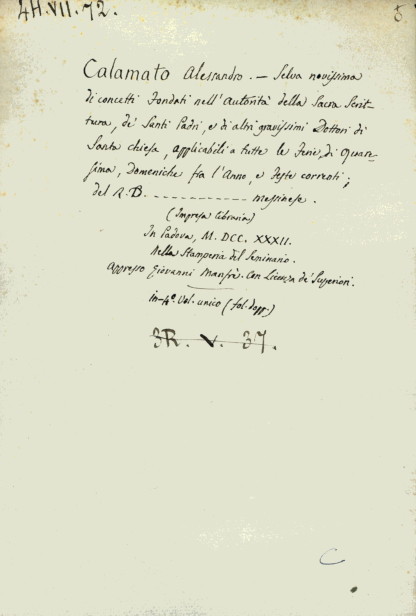 4H.VII.72.
Calamato Alessandro. — Selva novissima
di concetti Fondati nell'Autorità della Sacra Scrit-
tura, de' Santi Padri, e di altri gravissimi Dottori di
Santa chiesa, applicabili a tutte le Ferie, di Quare-
sima, Domeniche fra l'Anno, e Feste correnti;
del R.D. - - - - - - - - - - - - messinese.
(Impresa libraria)
In Padova, M. DCC. XXXII.
Nella Stamperia del Seminario.
Appresso Giovanni Manfrè. Con Licenza de' Superiori.
in-4°. Vol. unico (fol. dopp.)
3R. V. 37.
C